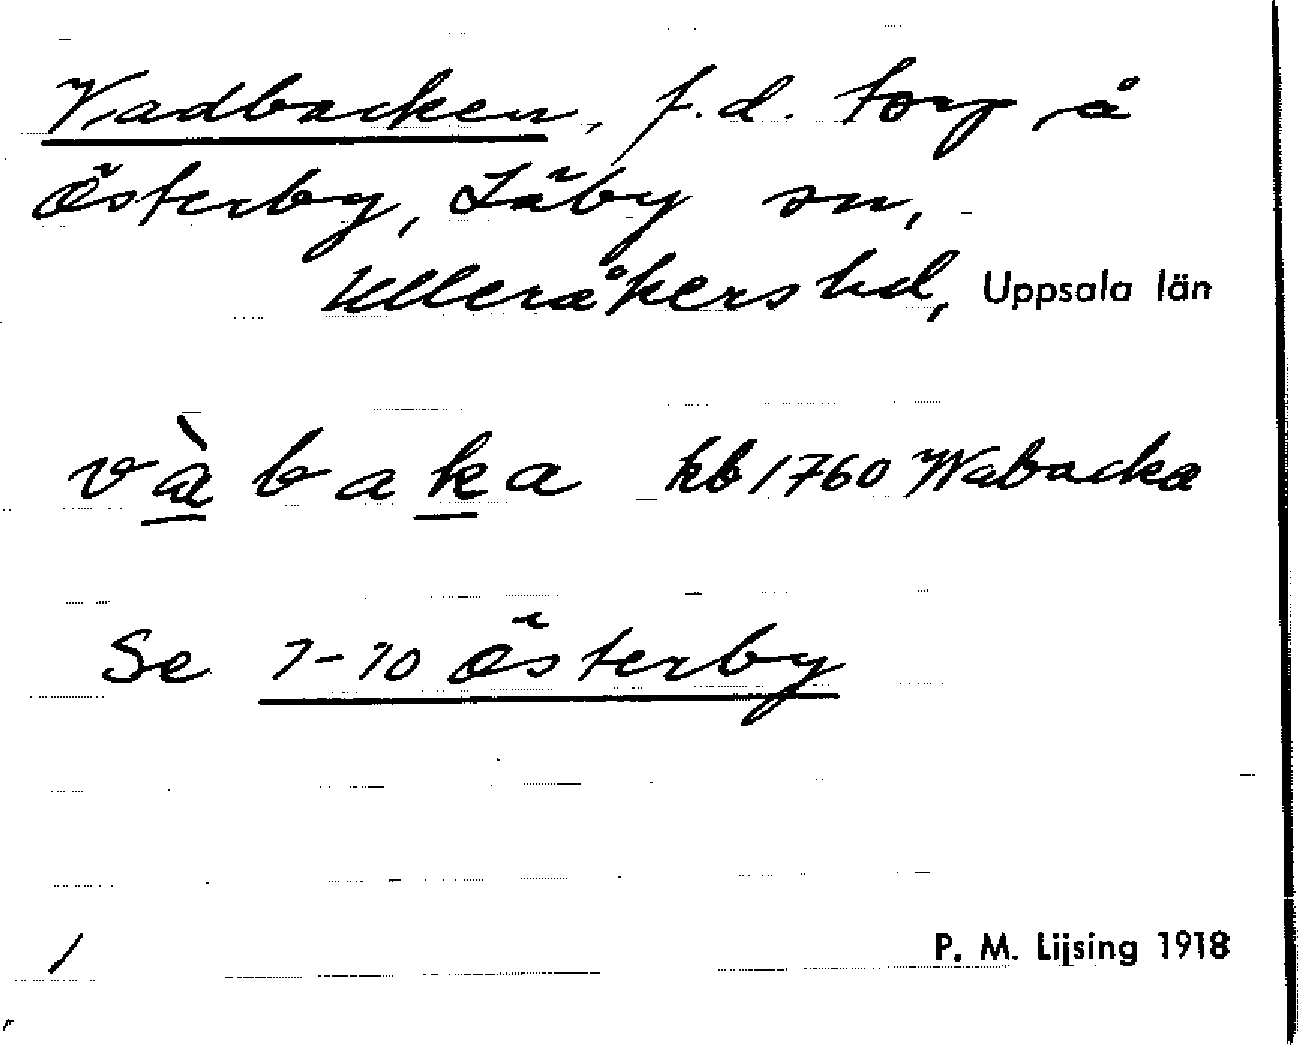 Vadbacken, f.d. torp å
Österby, Läby sn,
Ulleråkers hd, Uppsala län
và baka kb 1760 Wabacka
Se 7-10 Österby
1 P. M. Lijsing 1918